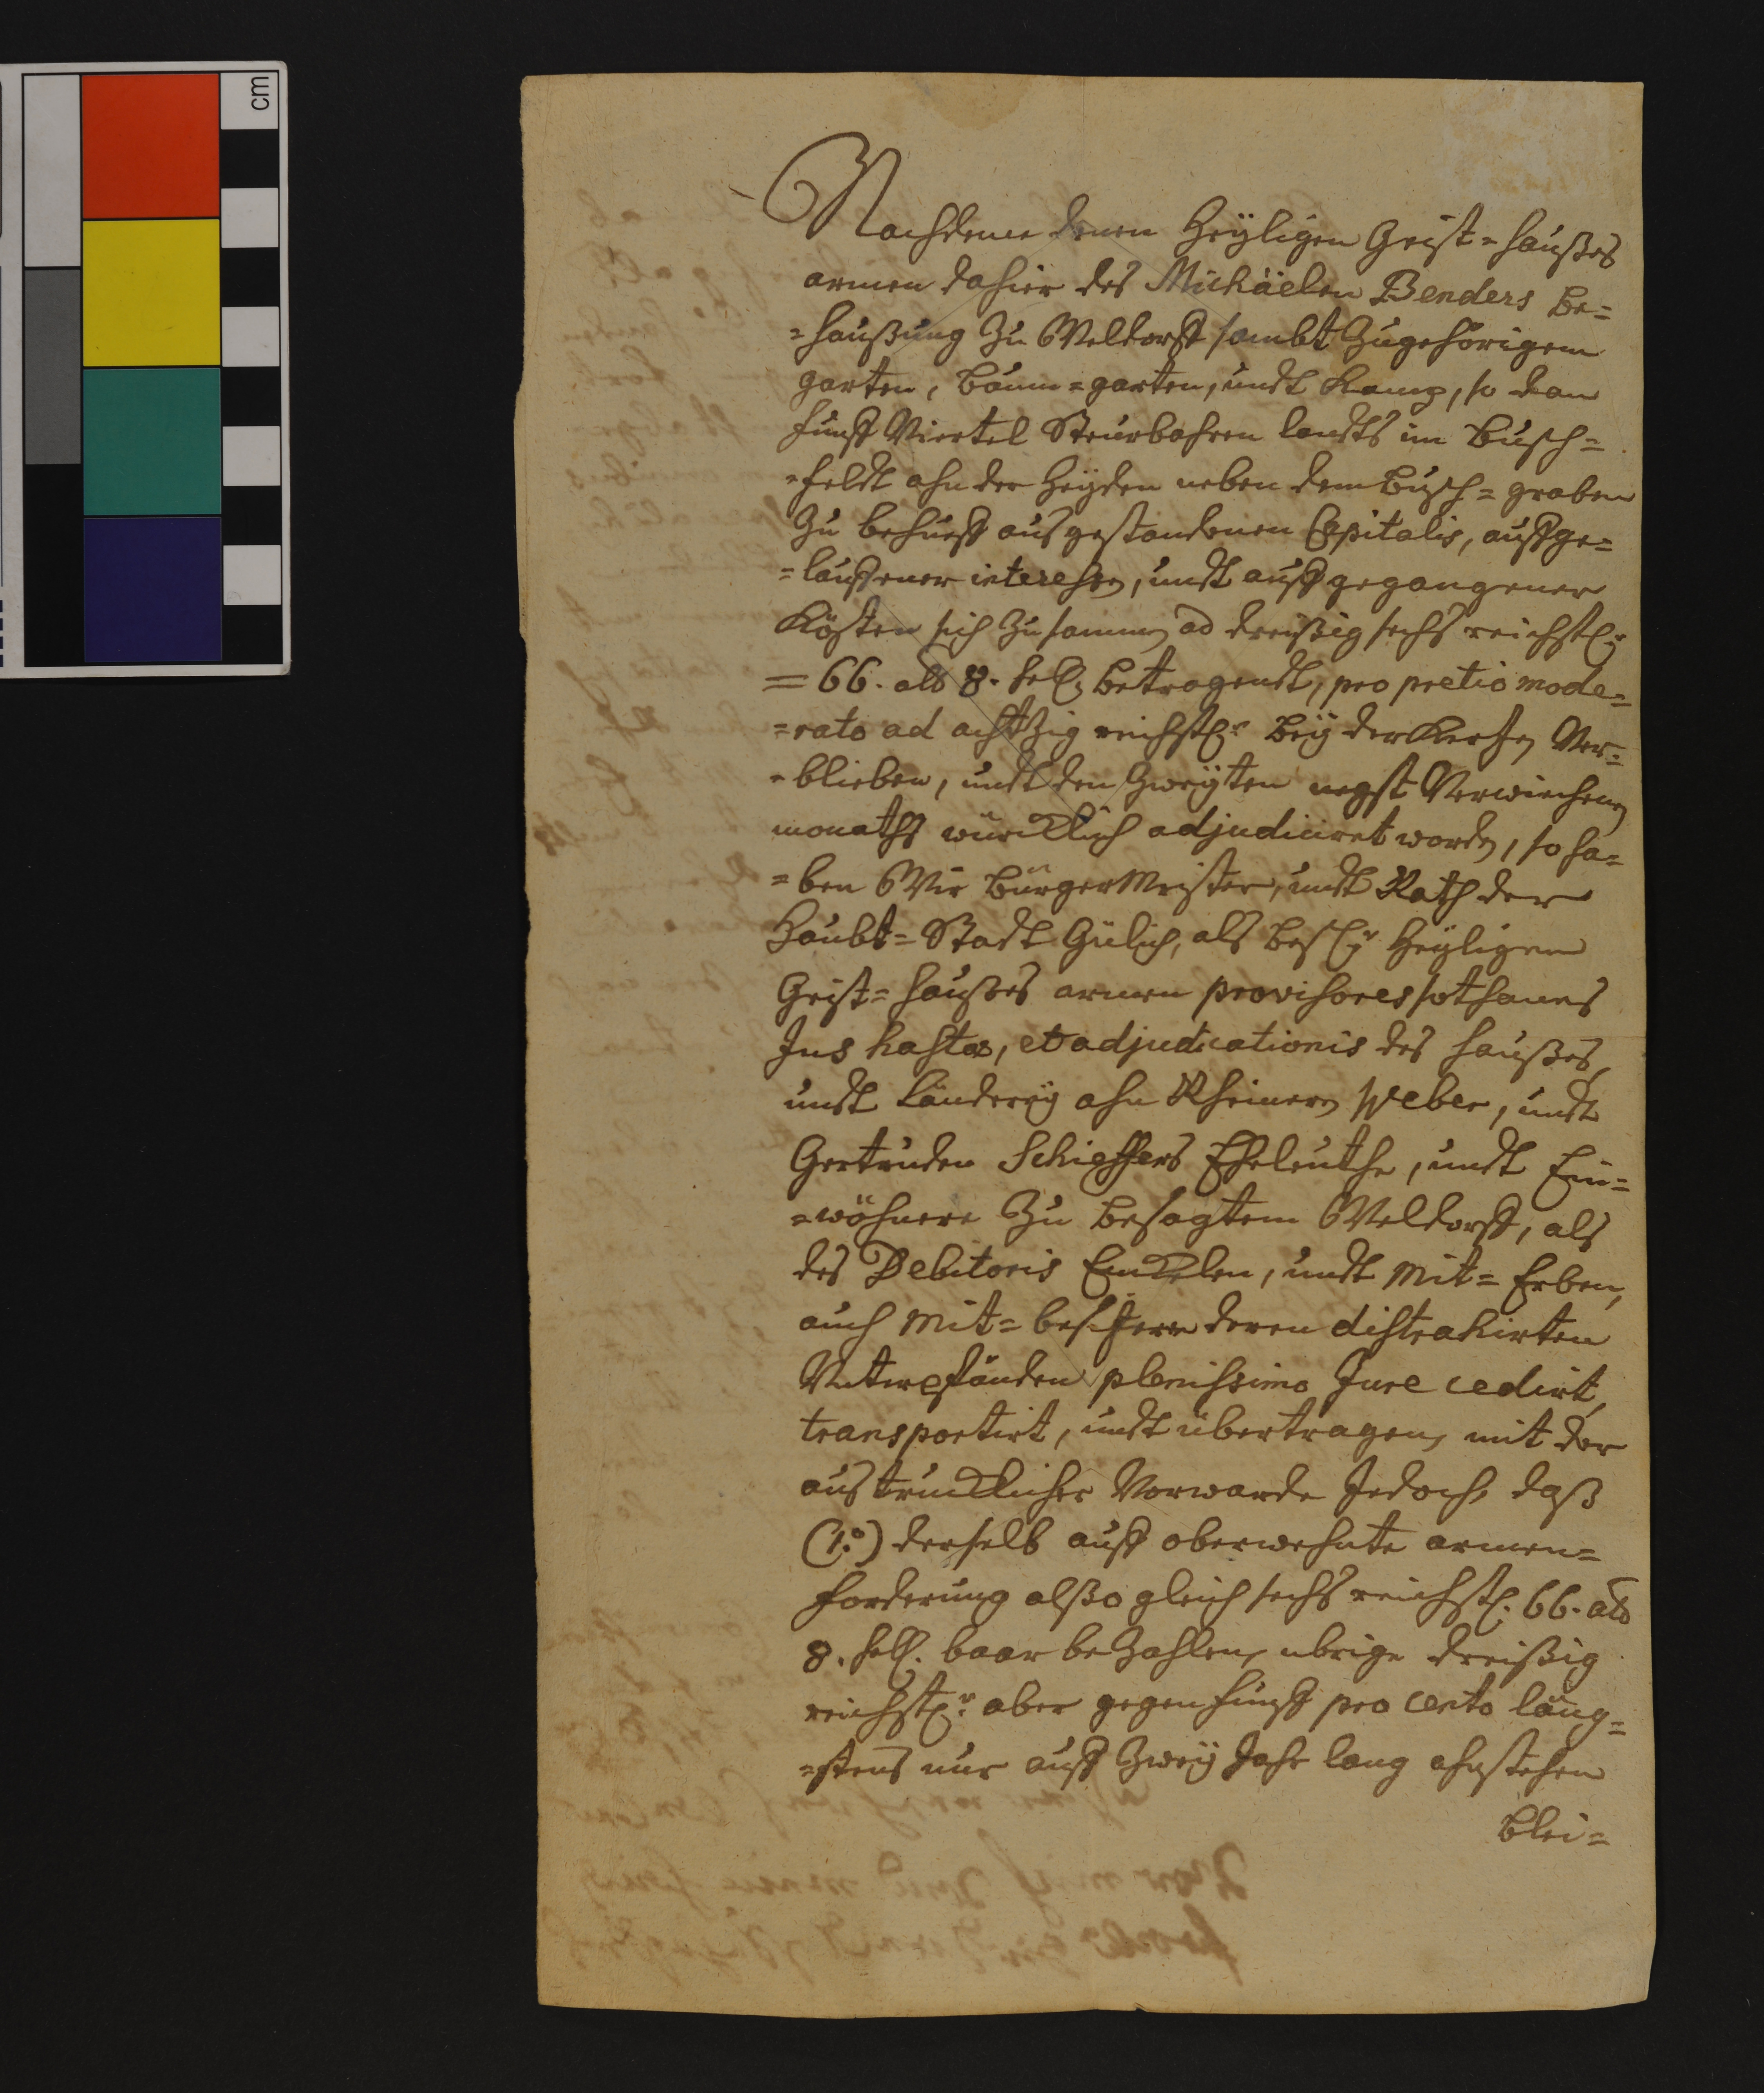 Nachdeme denen Heÿligen Geist=haußes
armen dahier des Michäelen Benders be=
=haußung zu Weldorff sambt zugehörigem
garten, baum=garten, undt kamp, so dan
funff Viertel Steurbahren landts im busch=
=feldt ahn der Heÿden neben dem busch=graben
zu behueff ausgestandenen Capitalis, auffge=
=lauffener interessen, undt auffgegangener
Kösten sich zusammen ad dreißig sechs reichstlr
=66. alb 8. hlr. betragendt, pro pretio mode=
=rato ad achtzig reichstlr beÿ der kertzen Ver=
=blieben, undt den zweÿten negst Verwiechenen
monaths würcklich adjudiciret worden, so ha=
=ben Wir bürgerMeister, undt Rath der
Haubt=Stadt Gülich, als besgr Heÿligen
Geist=haußes armen provisores sothanes
Jus hastae, et adjudicationis des haußes,
undt länderëÿ ahn Rheineren Weber, undt
Gertruden Schieffers Eheleuthe, undt Ein=
=wöhnere zu besagtem Weldorff, als
des Debitoris Enckelen, undt Mit=Erben,
auch Mit=besitzere deren distrahirten
Unterpfänden plenissimo Jure cedirt,
transportirt, undt übertragen, mit der
austrucklicher Vorwarde Jedoch, daß
(1.o) derselb auff oberwehnte armen=
forderung alßo gleich sechs reichstlr. 66. alb
8. hlr. baar bezahlen, ubrige dreißig
reichstlr aber gegen funff pro cento läng=
=stens nur auff zweÿ Jahr lang ahnstehen
blei=